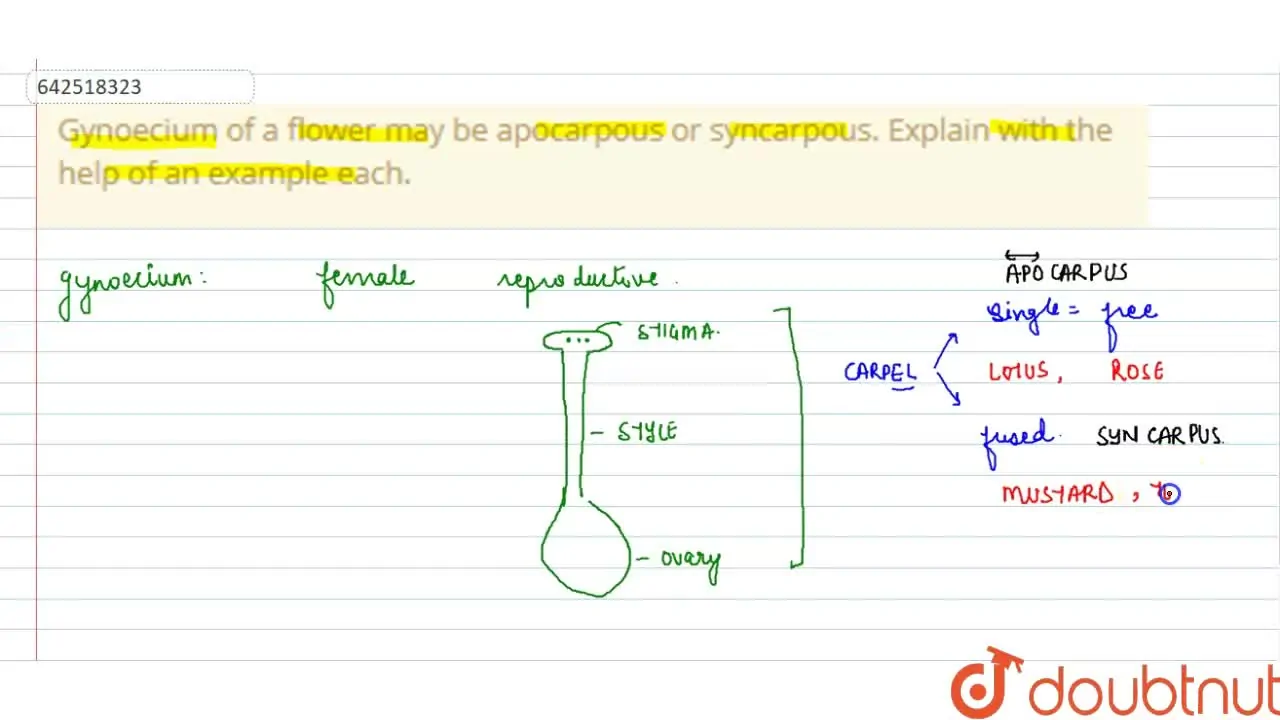 642518323
Gynoecium of a flower may be apocarpous or syncarpous. Explain with the
help of an example each.
gynoecium: female reproductive.
STIGMA.
STYLE
ovary
APOCARPUS
single = free
CARPEL
LOTUS, ROSE
fused. SYNCARPUS.
MUSTARD,
doubtnut